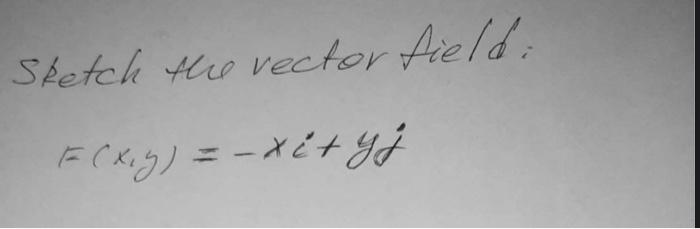 Sketch the vector field:
F(x,y) = -xi + yj